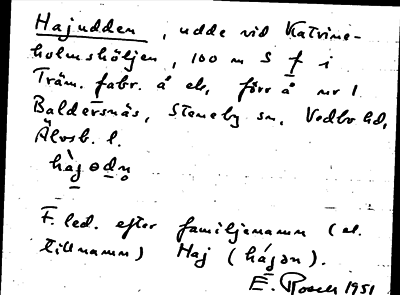 Hajudden, udde vid Katrine-
holmshöljen, 100 m S f i
Träm. fabr. å ek, förr å nr 1
Baldersnäs, Steneby sn, Vedbo hd,
Älvsb. l.
F. led. efter familjenamn (el.
tillnamn) Haj (
E. Rosell 1951